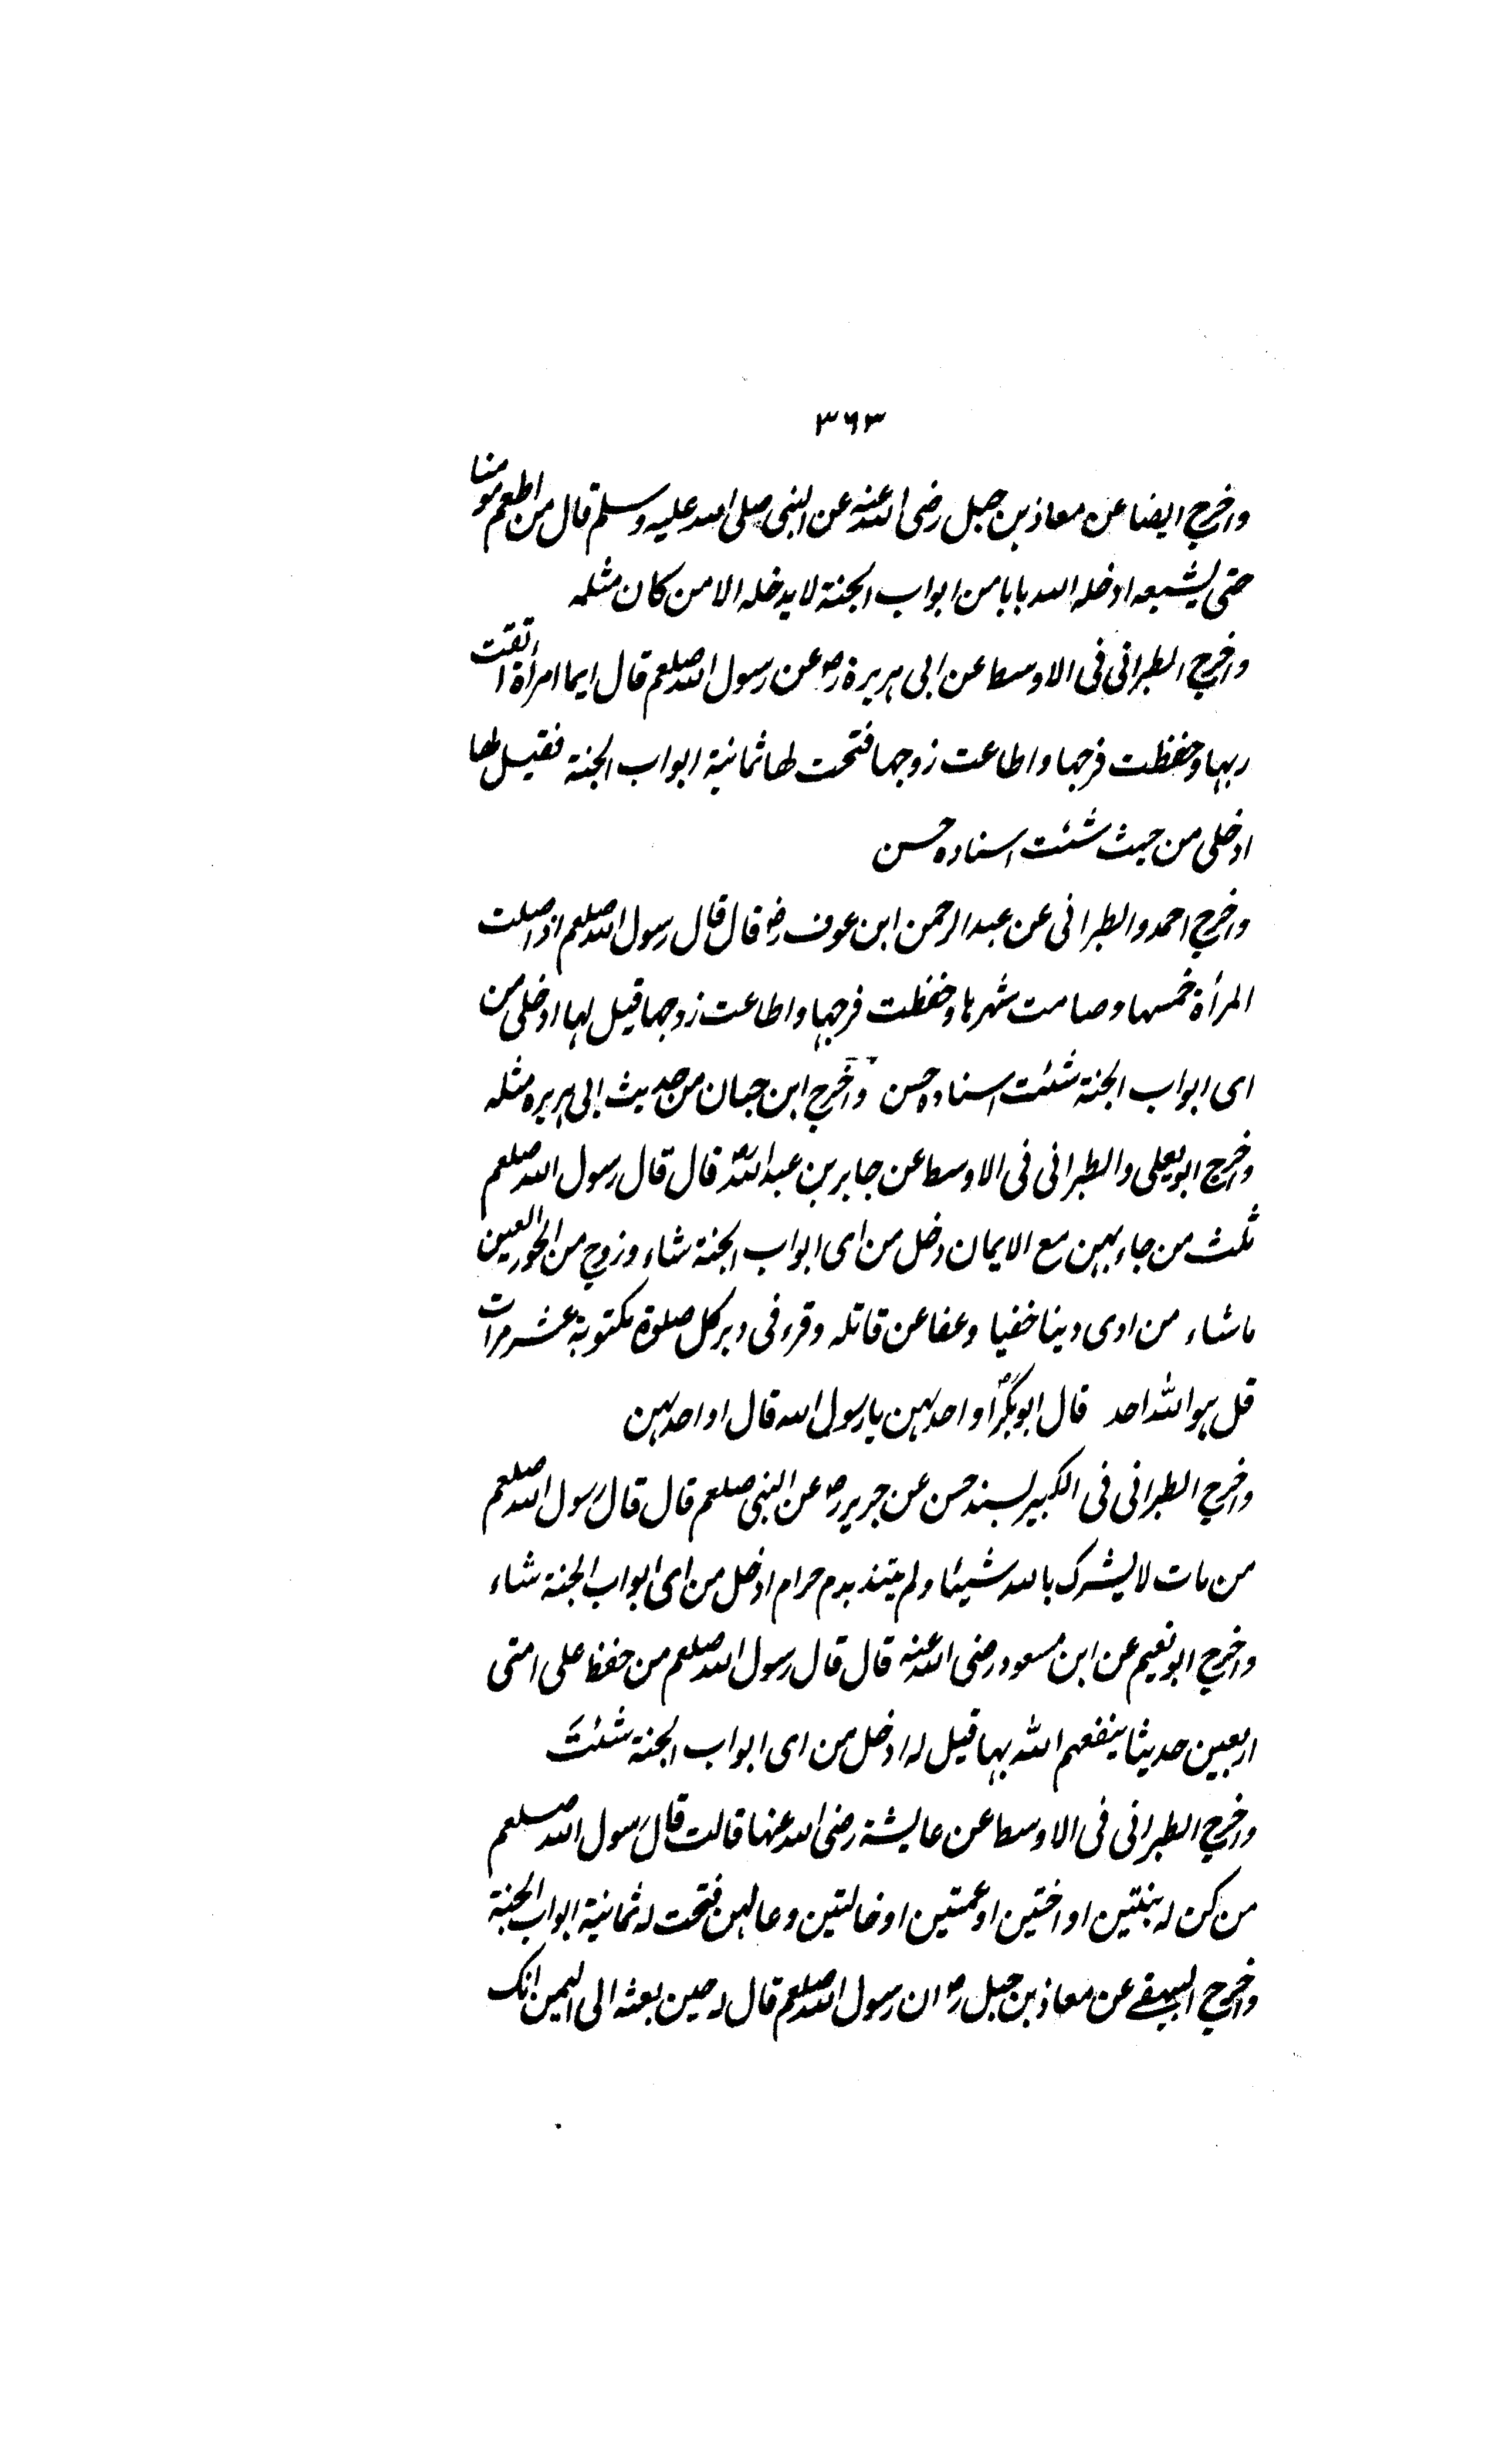 ۳۶۳
واخرج ایضا عن معاذ بن جبل رضی الله عنه عن النبی صلی الله علیه وسلم قال من اطعم مومنا
حتی یشبعه ادخله الله بابا من ابواب الجنة لا یدخله الا من کان مثله
واخرج الطبرانی فی الاوسط عن ابی هریرة رض عن رسول الله صلعم قال ایما امرأة اتقت
ربها وحفظت فرجها واطاعت زوجها فتحت لها ثمانیة ابواب الجنة فقیل لها
ادخلی من حیث شئت اسناده حسن
واخرج احمد والطبرانی عن عبد الرحمن ابن عوف رض قال قال رسول الله صلعم اذا صلت
المرأة خمسها وصامت شهرها وحفظت فرجها واطاعت زوجها قیل لها ادخلی من
ای ابواب الجنة شئت اسناده حسن واخرج ابن حبان من حدیث ابی هریره مثله
واخرج ابو یعلی والطبرانی فی الاوسط عن جابر بن عبد الله رض قال قال رسول الله صلعم
ثلث من جاء بهن مع الایمان دخل من ای ابواب الجنة شاء وزوج من الحور العین
ما شاء من ادی دینا خفیا وعفا عن قاتله وقرء فی دبر کل صلوة مکتوبة عشر مرات
قل هو الله احد قال ابوبکر رض او احدهن یا رسول الله قال او احدهن
واخرج الطبرانی فی الکبیر بسند حسن عن جریر رض عن النبی صلعم قال قال رسول الله صلعم
من مات لا یشرک بالله شیئا ولم یتند بدم حرام ادخل من ای ابواب الجنة شاء
واخرج ابو نعیم عن ابن مسعود رضی الله عنه قال قال رسول الله صلعم من حفظ علی امتی
اربعین حدیثا ینفعهم الله بها قیل له ادخل من ای ابواب الجنة شئتَ
واخرج الطبرانی فی الاوسط عن عایشة رضی الله عنها قالت قال رسول الله صلعم
من کن له بنتین او اختین او عمتین او خالتین وعالهن فتحت له ثمانیة ابواب الجنة
واخرج البیهقے عن معاذ بن جبل رض ان رسول الله صلعم قال له حین بعثه الی الیمن انک